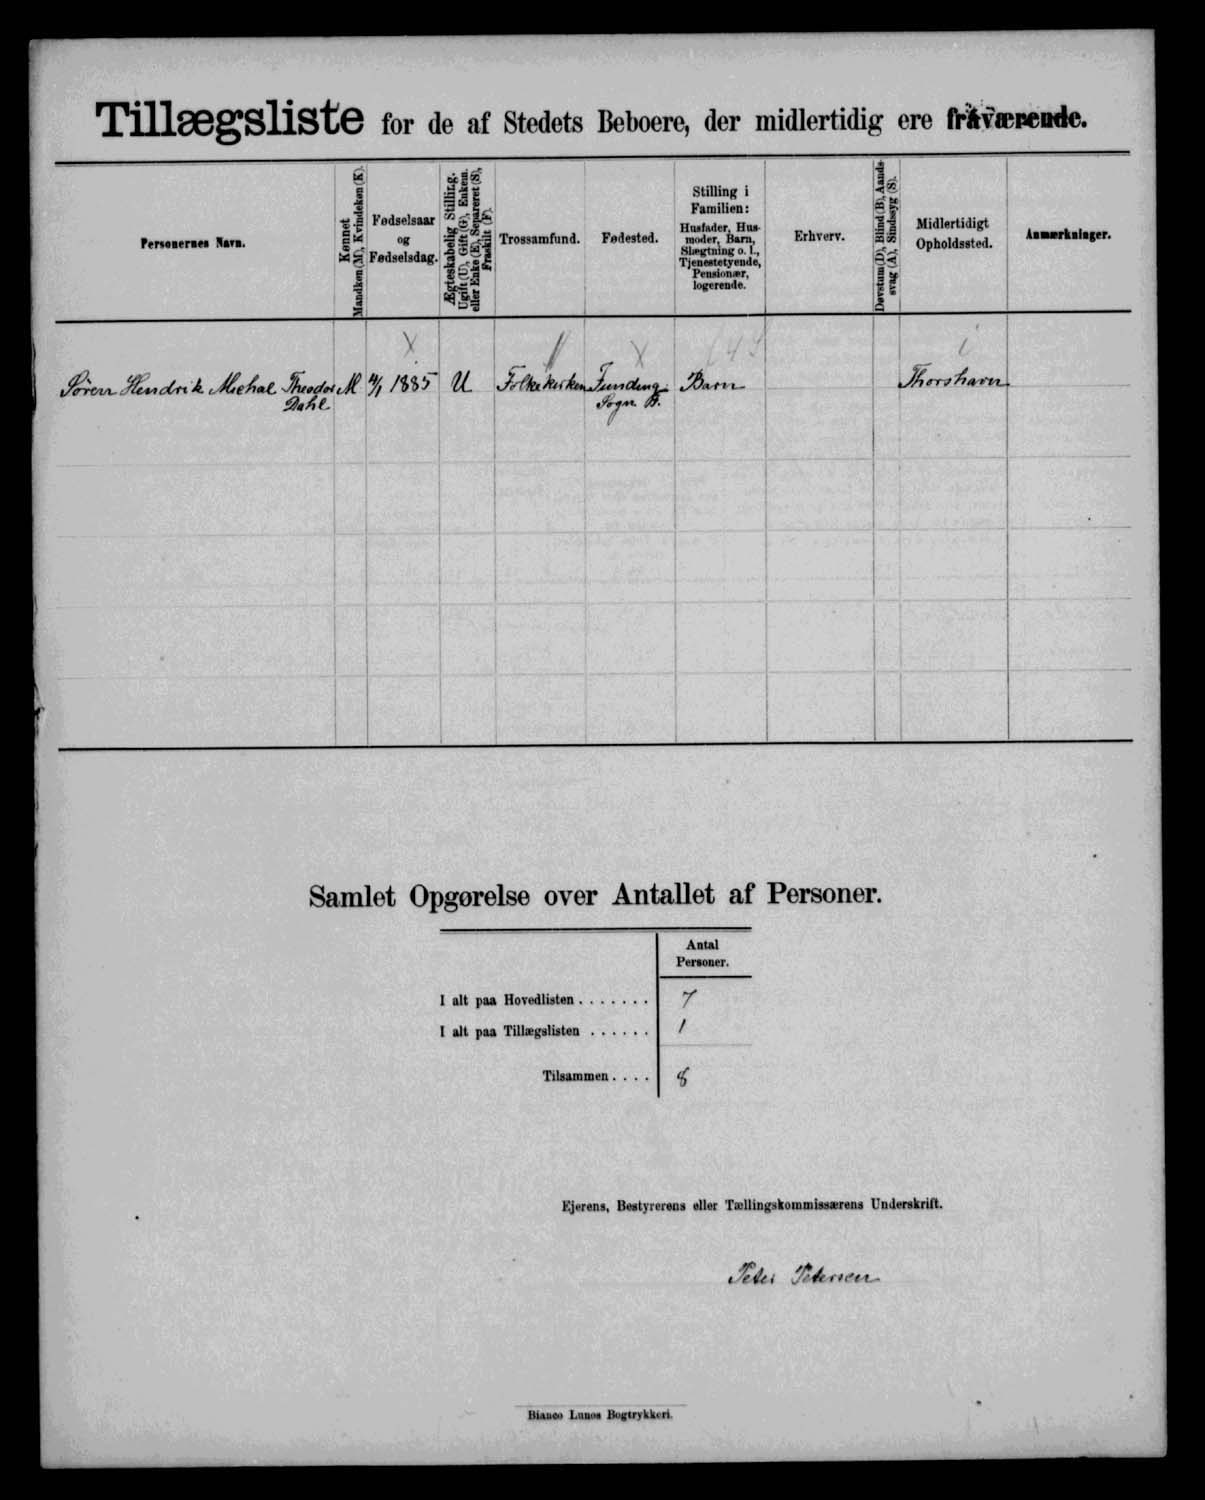 Tillægsliste for de af Stedets Beboere, der midlertidig ere fraværende.
Personernes Navn.
Kønnet
Mandkøn (M), Kvindekøn (K).
Fødselsaar
og
Fødselsdag.
Ægteskabelig Stilling.
Ugift (U), Gift (G), Enkem.
eller Enke (E), Separeret (S),
Fraskilt (F).
Trossamfund.
Fødested.
Stilling i
Familien:
Husfader, Hus-
moder, Barn,
Slægtning o. l.,
Tjenestetyende,
Pensionær,
logerende.
Erhverv.
Døvstum (D), Blind (B), Aands-
svag (A), Sindssyg (S).
Midlertidigt
Opholdssted.
Anmærkninger.
Sören Hendrik Michal Theodor M 1885 U Folkekirken Funding Barn Thorshavn
Dahl Sogn
Samlet Opgørelse over Antallet af Personer.
Antal
Personer.
I alt paa Hovedlisten . . . . . . . 7
I alt paa Tillægslisten . . . . . . 1
Tilsammen . . . . 8
Ejerens, Bestyrerens eller Tællingskommissærens Underskrift.
Peter Petersen
Bianco Lunos Bogtrykkeri.